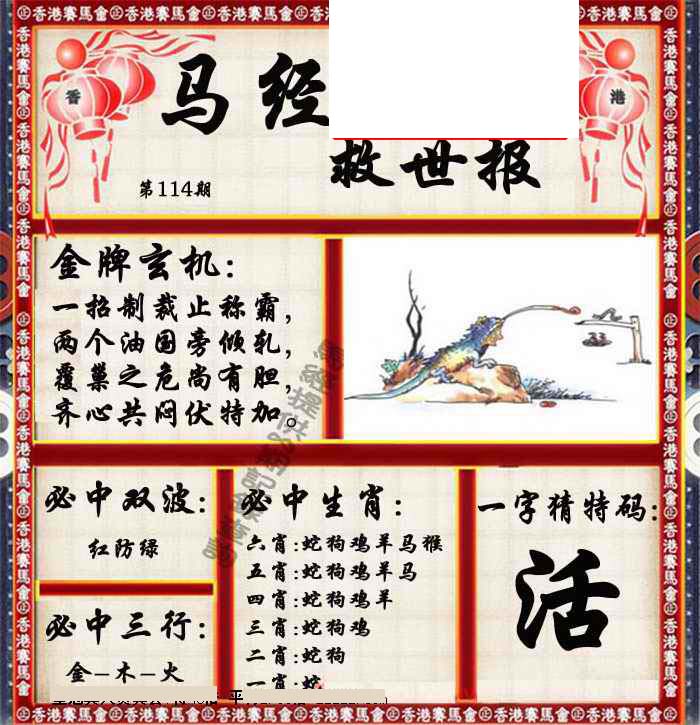 香港賽馬會
香
港
马经
救世报
第114期
金牌玄机:
一招制裁止称霸,
两个油国旁倾轧,
覆巢之危尚有胆,
齐心共闷伏特加。
必中双波:
红防绿
必中三行:
金-木-火
必中生肖:
六肖:蛇狗鸡羊马猴
五肖:蛇狗鸡羊马
四肖:蛇狗鸡羊
三肖:蛇狗鸡
二肖:蛇狗
一肖:蛇
一字猜特码:
活